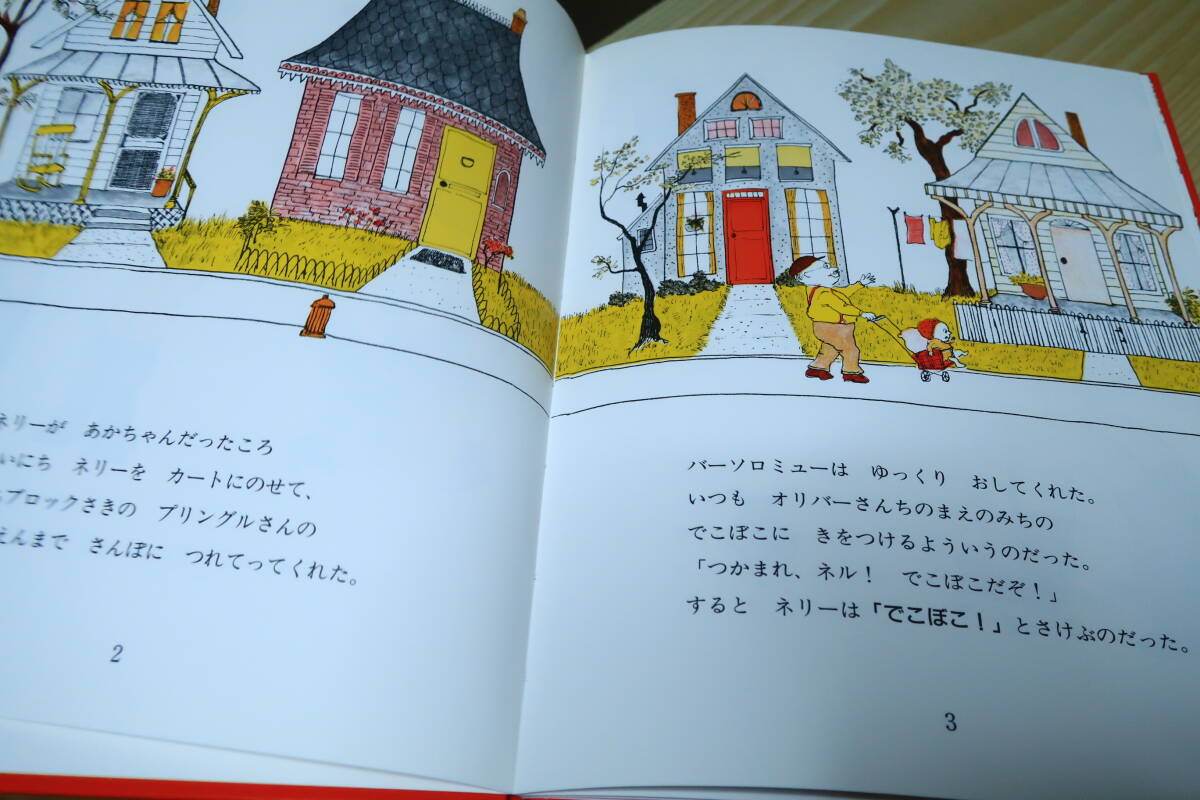 ネリーが　あかちゃんだったころ
いにち　ネリーを　カートにのせて、
ブロックさきの　プリングルさんの
えんまで　さんぽに　つれてってくれた。
2
バーソロミューは　ゆっくり　おしてくれた。
いつも　オリバーさんちのまえのみちの
でこぼこに　きをつけるよういうのだった。
「つかまれ、ネル！　でこぼこだぞ！」
すると　ネリーは「でこぼこ！」とさけぶのだった。
3